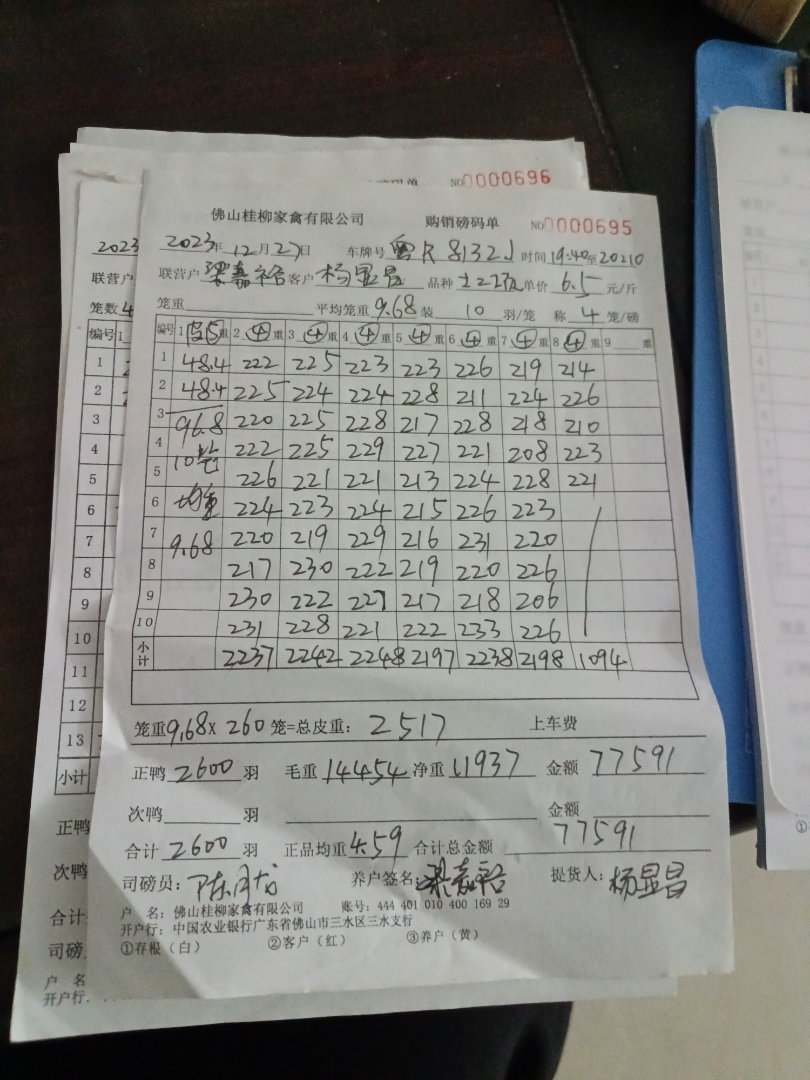 NO0000696
佛山桂柳家禽有限公司 购销磅码单 NO0000695
2023年12月27日 车牌号 粤R8132J 时间19:40至20210
联营户 梁嘉裕 客户 杨显昌 品种 单价 6.5 元/斤
笼重 平均笼重 9.68 装 10 羽/笼 称 4 笼/磅
编号 1 ⑤ 重 2 ④ 重 3 ④ 重 4 ④ 重 5 ④ 重 6 ④ 重 7 ④ 重 8 ④ 重 9 重
1 48.4 222 225 223 223 226 219 214
2 48.4 225 224 224 228 211 224 226
3 96.8 220 225 228 217 228 218 210
4 10笼 222 225 229 227 221 208 223
5 226 221 221 213 224 228 221
6 均重 224 223 224 215 226 223
7 9.68 220 219 229 216 231 220
8 217 230 222 219 220 226
9 230 222 227 217 218 206
10 231 228 221 222 233 226
小计 2237 2242 2248 2197 2238 2198 1094
笼重9.68X 260 笼=总皮重: 2517 上车费
正鸭 2600 羽 毛重 14454 净重 11937 金额 77591
次鸭 羽 金额
合计 2600 羽 正品均重 4.59 合计总金额 77591
司磅员: 养户签名: 梁嘉裕 提货人: 杨显昌
户 名: 佛山桂柳家禽有限公司 账号: 444 401 010 400 169 29
开户行: 中国农业银行广东省佛山市三水区三水支行
①存根(白) ②客户(红) ③养户(黄)
2023
联营户
笼数 4
编号 1
1
2
3
4
5
6
7
8
9
10
11
12
13
小计
正鸭
次鸭
合计
司磅
户 名
开户行